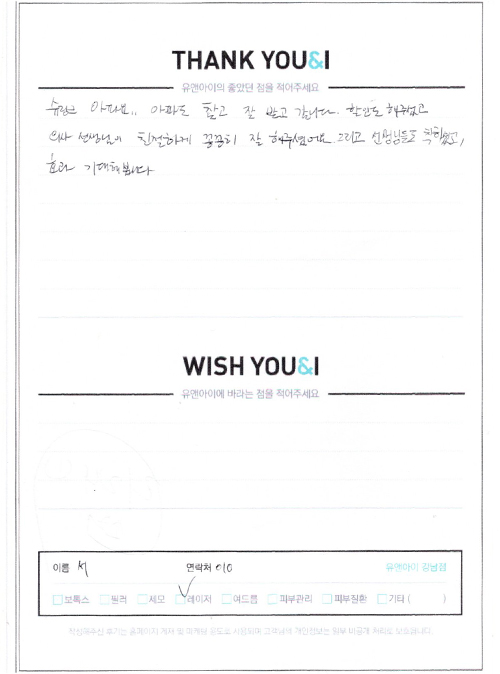 THANK YOU&I
유앤아이의 좋았던 점을 적어주세요
슈링크 아파요.. 아파도 참고 잘 받고 갑니다. 할인도 해주셨고
의사 선생님이 친절하게 꼼꼼히 잘 해주셨어요 그리고 선생님들도 착하셨고,
효과 기대해봅니다
WISH YOU&I
유앤아이에 바라는 점을 적어주세요
이름 서 연락처 010 유앤아이 강남점
보톡스 필러 제모 레이저 여드름 피부관리 피부질환 기타 ( )
작성해주신 후기는 홈페이지 게재 및 마케팅 용도로 사용되며 고객님의 개인정보는 일부 비공개 처리로 보호됩니다.